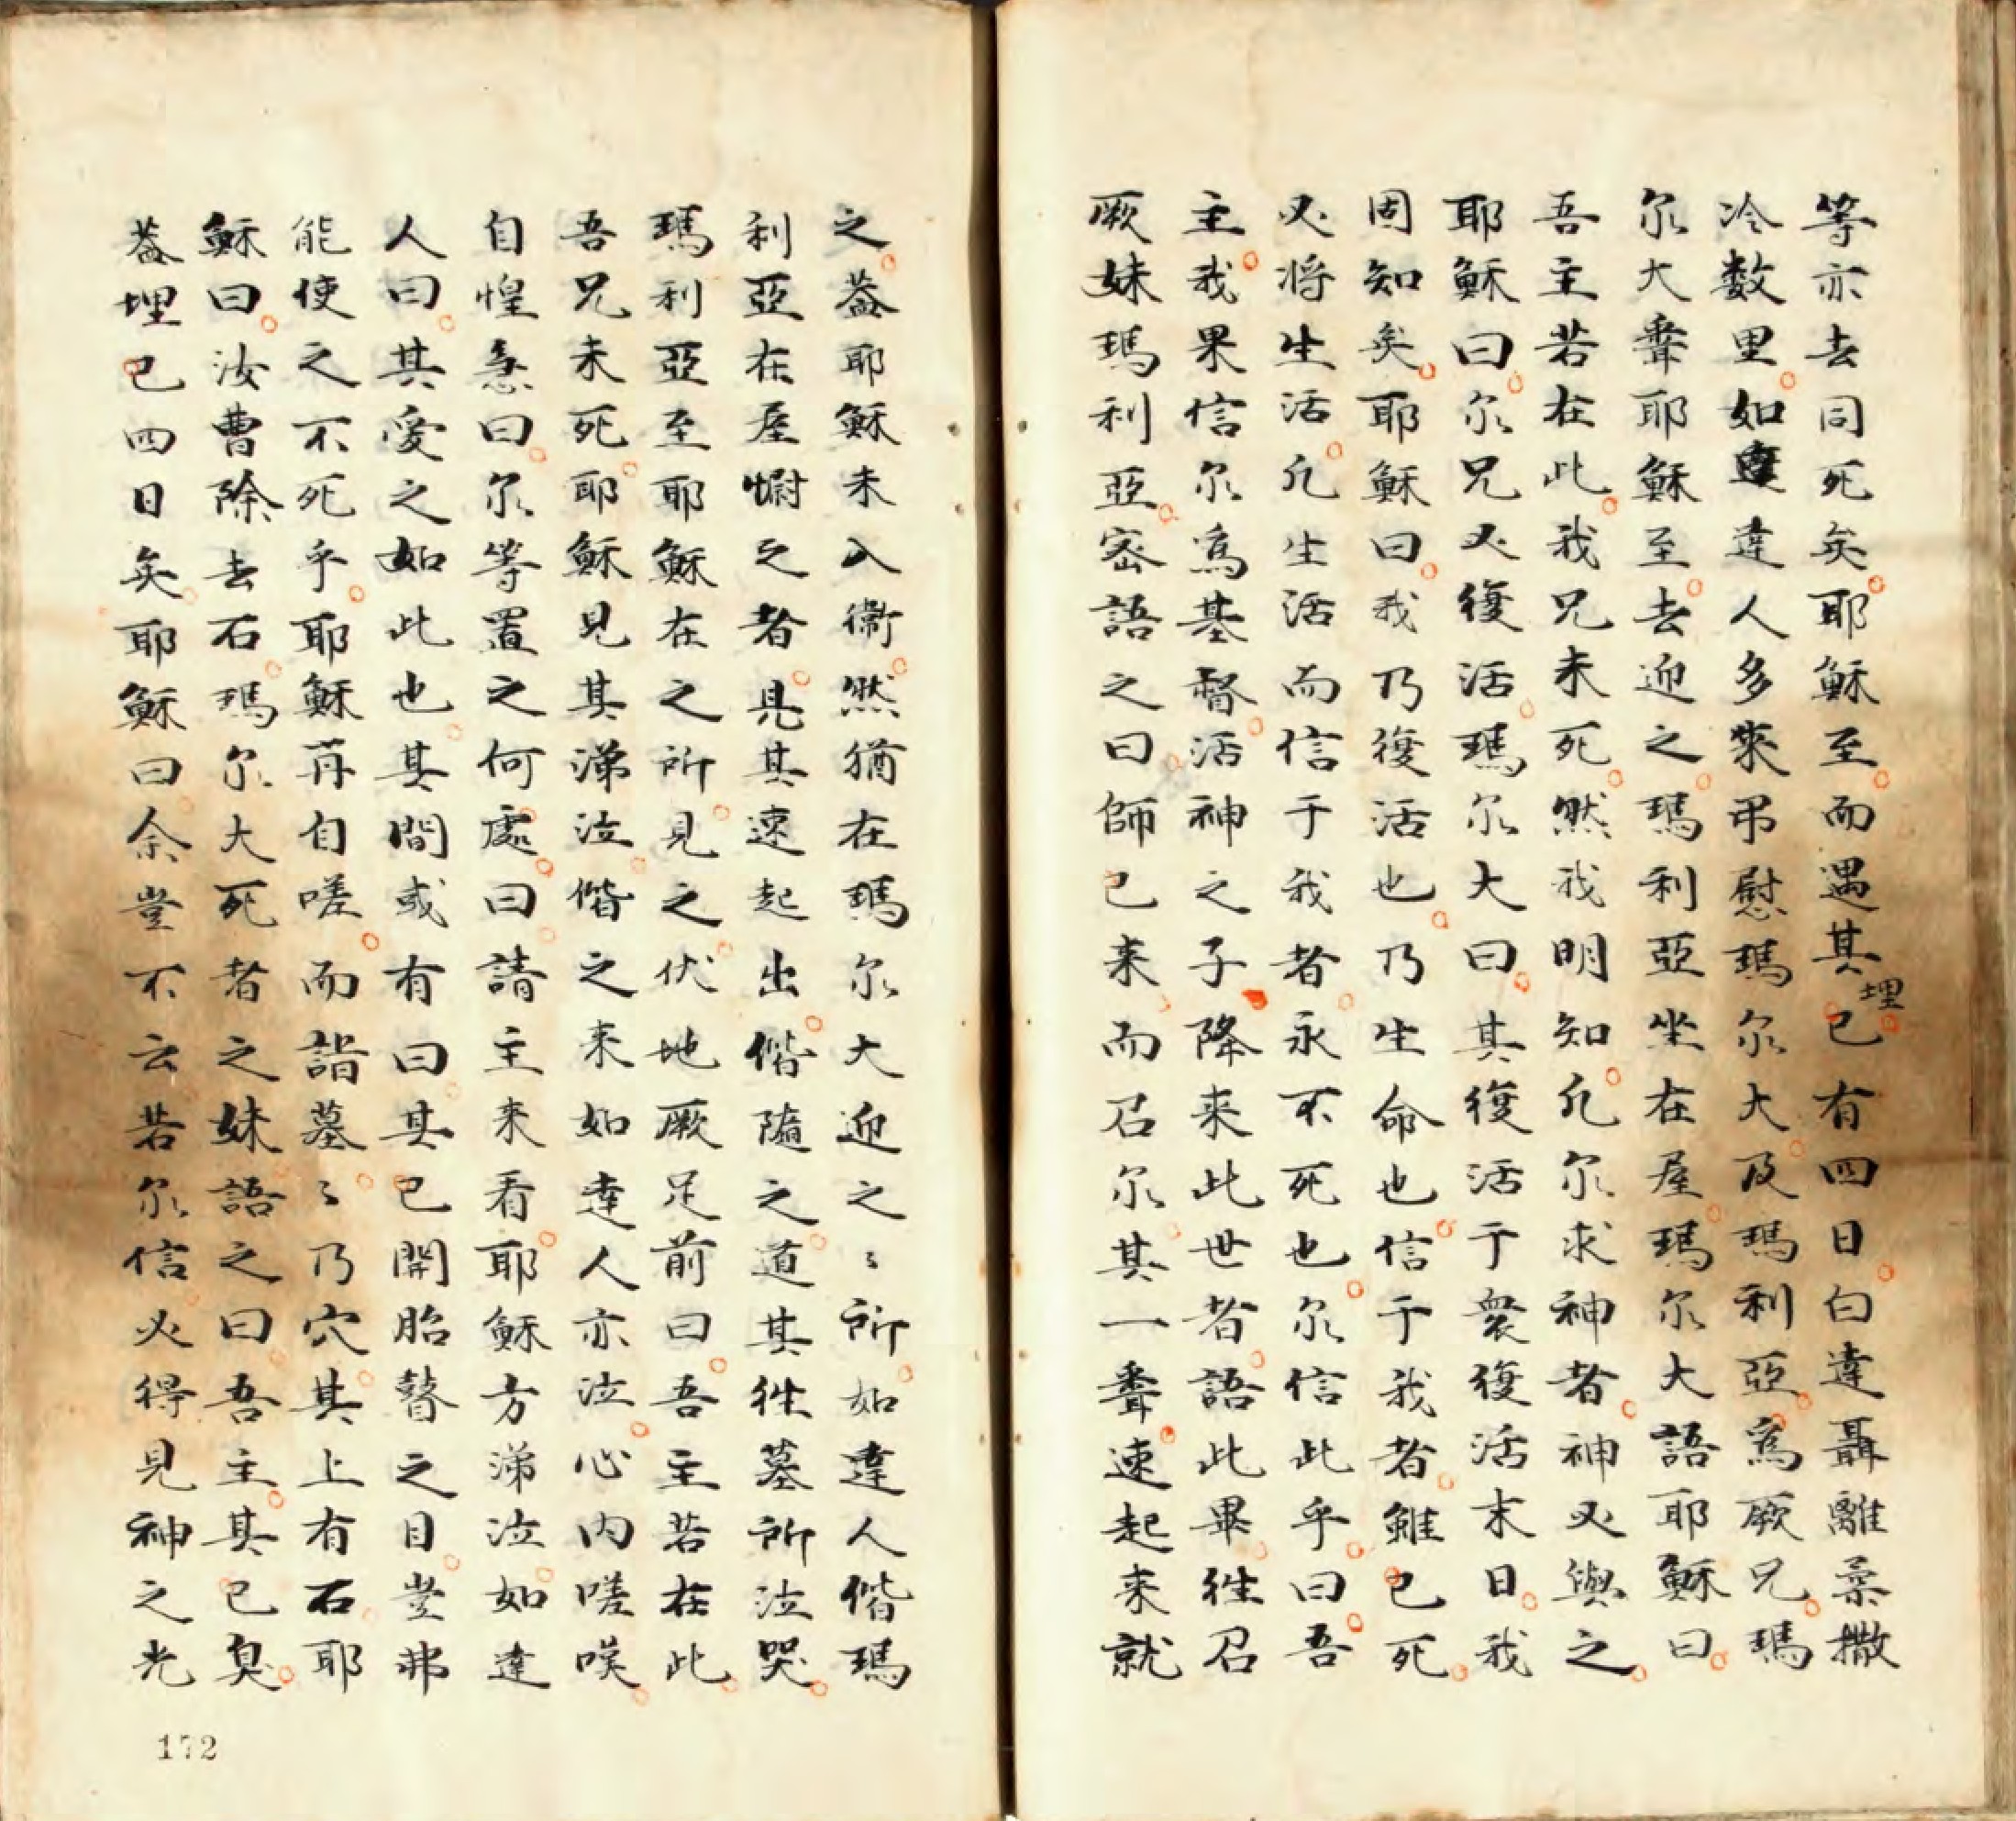 等亦去同死矣耶穌至而遇其埋已有四日白達聶離柔撒
冷数里如達達人多來弔慰瑪尔大及瑪利亞爲厥兄瑪
尔大聲耶穌至去迎之瑪利亞坐在屋瑪尔大語耶穌曰
吾主若在此我兄未死然我明知凡尔求神者神必與之
耶穌曰尔兄必復活瑪尔大曰其復活于衆復活末日我
固知矣耶穌曰我乃復活也乃生命也信于我者雖已死
必將生活凡生活而信于我者永不死也尔信此乎曰吾
主我果信尔爲基督活神之子降来此世者語此畢徃召
厥妹瑪利亞密語之曰師已来而召尔其一聲速起来就
之蓋耶穌未入衛然猶在瑪尔大迎之〻所如達人偕瑪
利亞在屋慰之者見其速起出偕隨之道其徃墓所泣哭
瑪利亞至耶穌在之所見之伏地厥足前曰吾主若在此
吾兄未死耶穌見其涕泣偕之来如達人亦泣心内嗟嘆
自惶急曰尔等置之何處曰請主来看耶穌方涕泣如達
人曰其愛之如此也其間或有曰其已開胎瞽之目豈弗
能使之不死乎耶穌再自嗟而詣墓〻乃穴其上有石耶
穌曰汝曹除去石瑪尔大死者之妹語之曰吾主其已臭
蓋埋已四日矣耶穌曰余豈不云若尔信必得見神之光
172